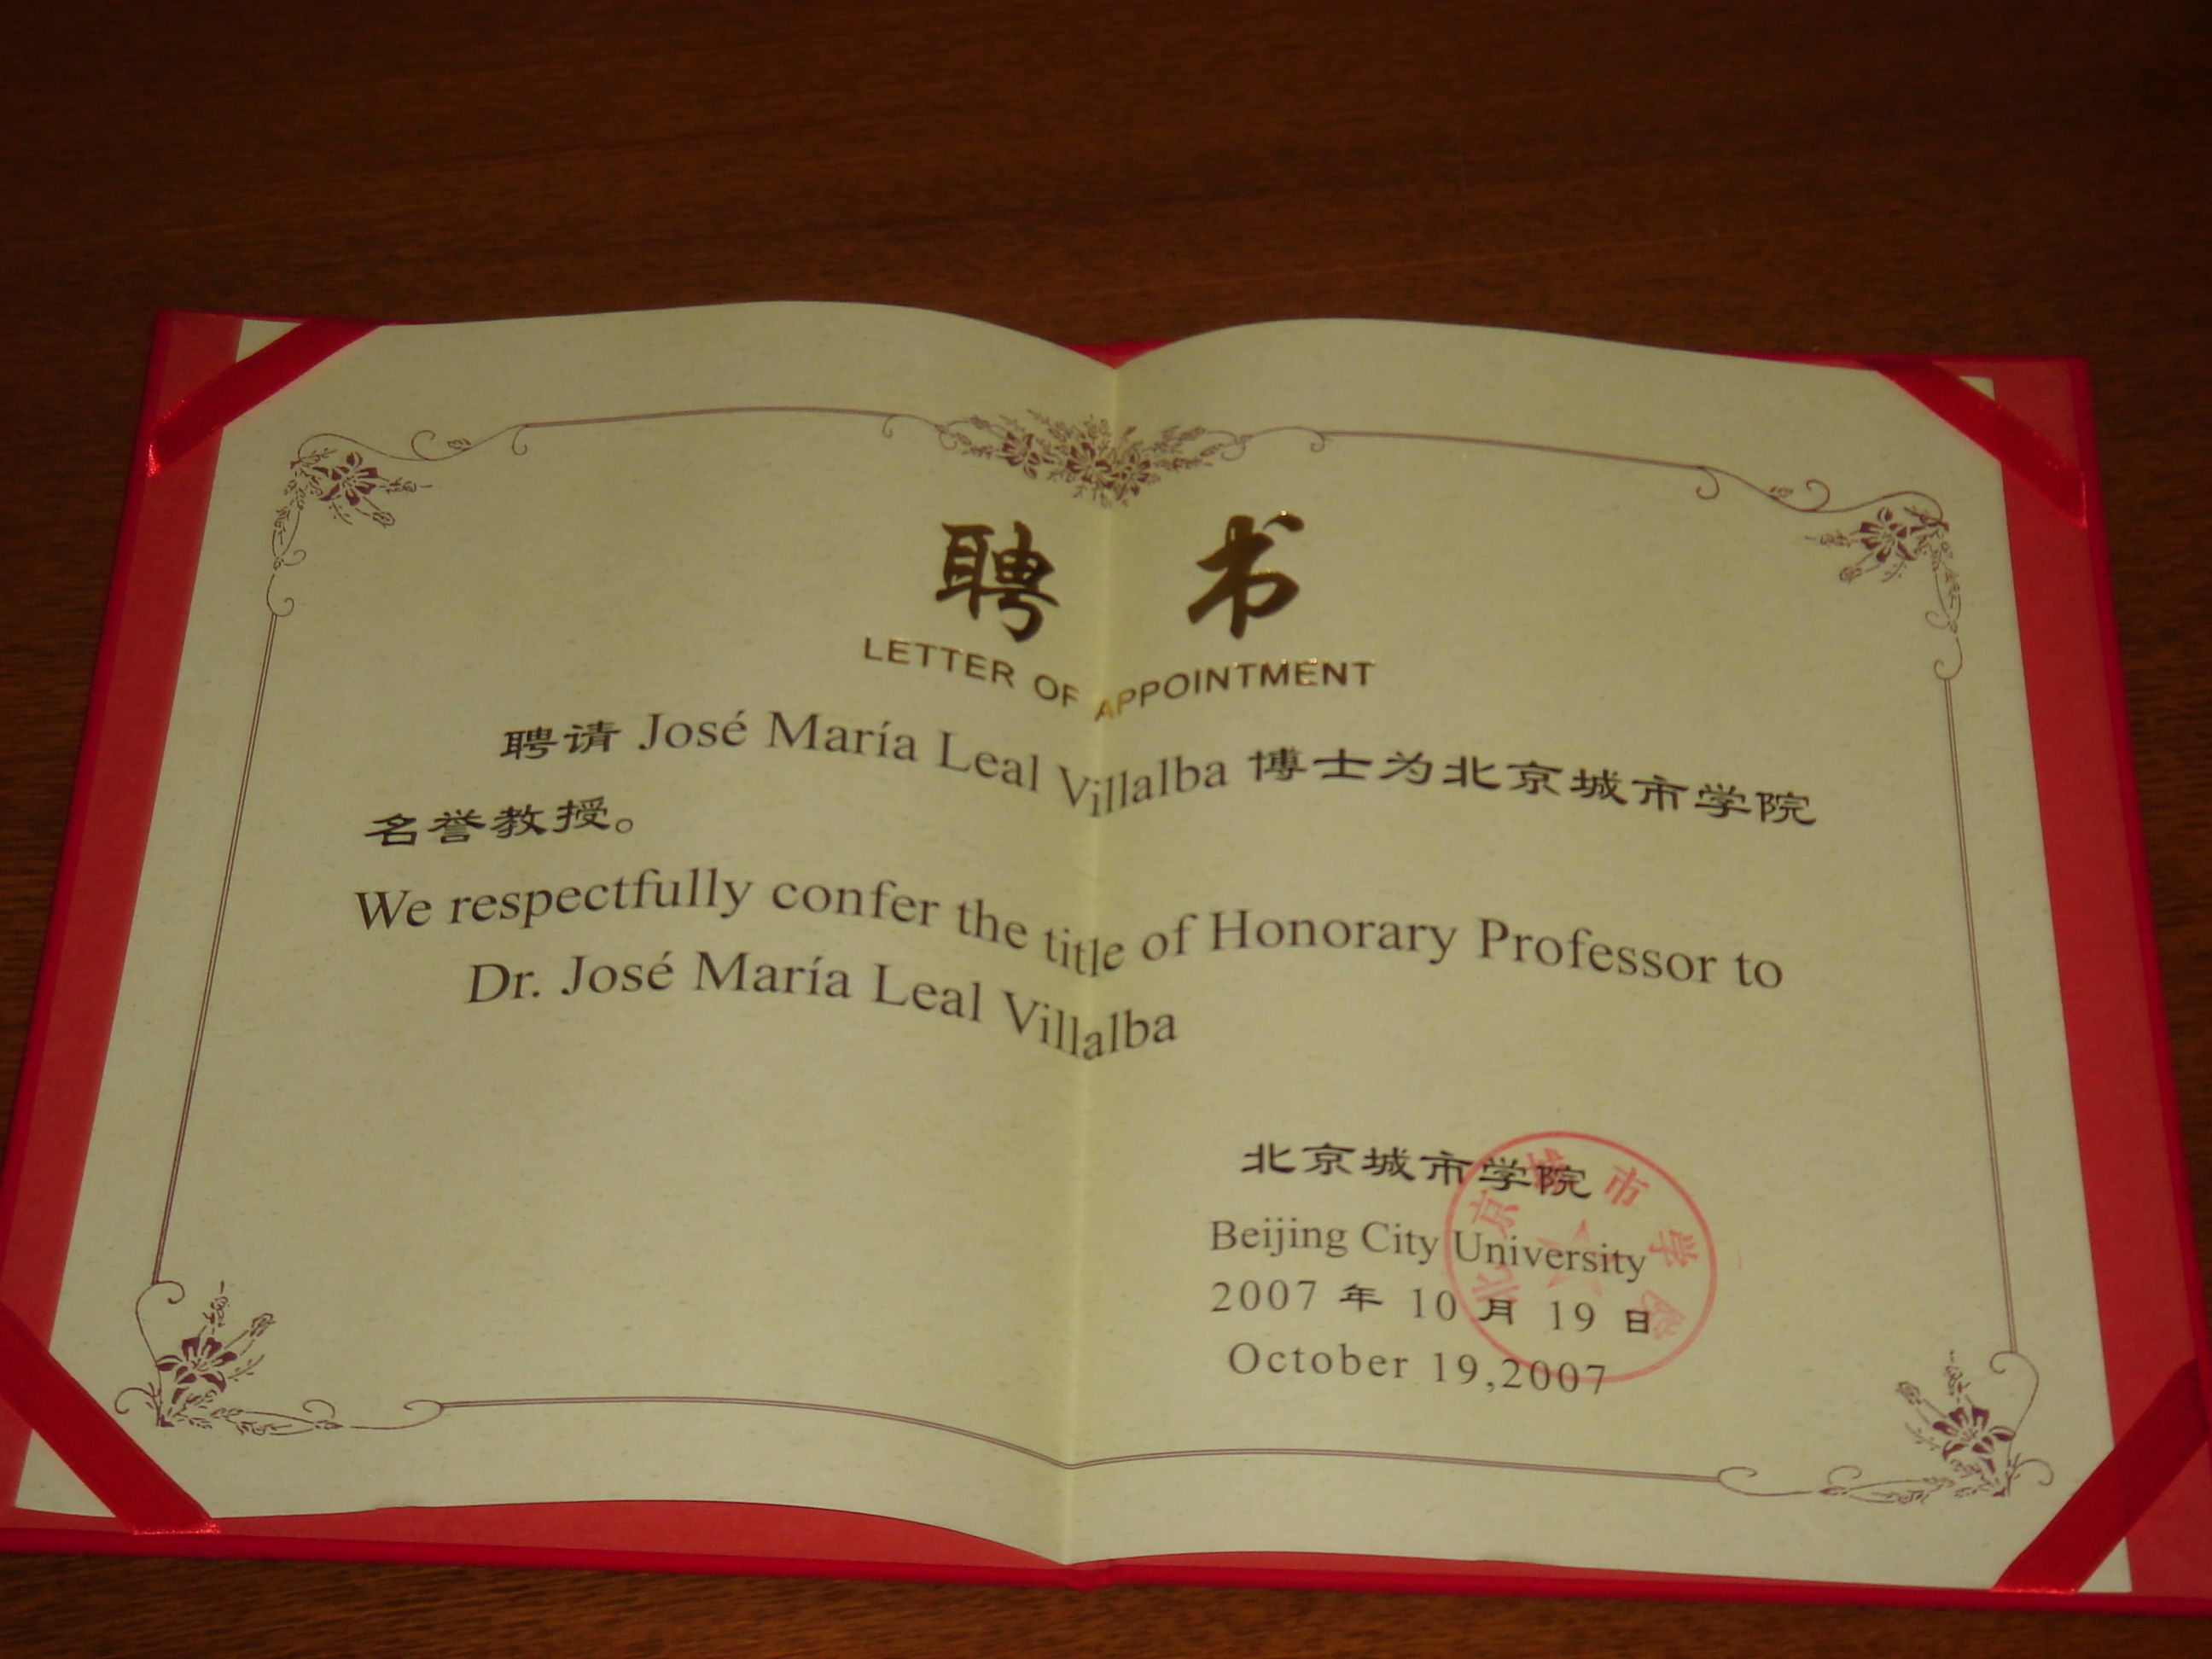 聘 书
LETTER OF APPOINTMENT
聘请 José María Leal Villalba 博士为北京城市学院
名誉教授。
We respectfully confer the title of Honorary Professor to
Dr. José María Leal Villalba
北京城市学院
Beijing City University
2007 年 10 月 19 日
October 19,2007
北京城市学院